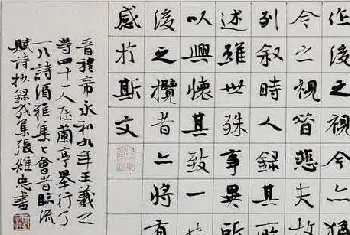 作後之視今亦由
今之視昔悲夫故
列敘時人錄其所
述雖世殊事異所
以興懷其致一也
後之攬者亦將有
感於斯文
晉穆帝永和九年王羲之
等四十一人在蘭亭舉行了
一次詩酒雅集與會者臨流
賦詩抄錄成集張維忠書